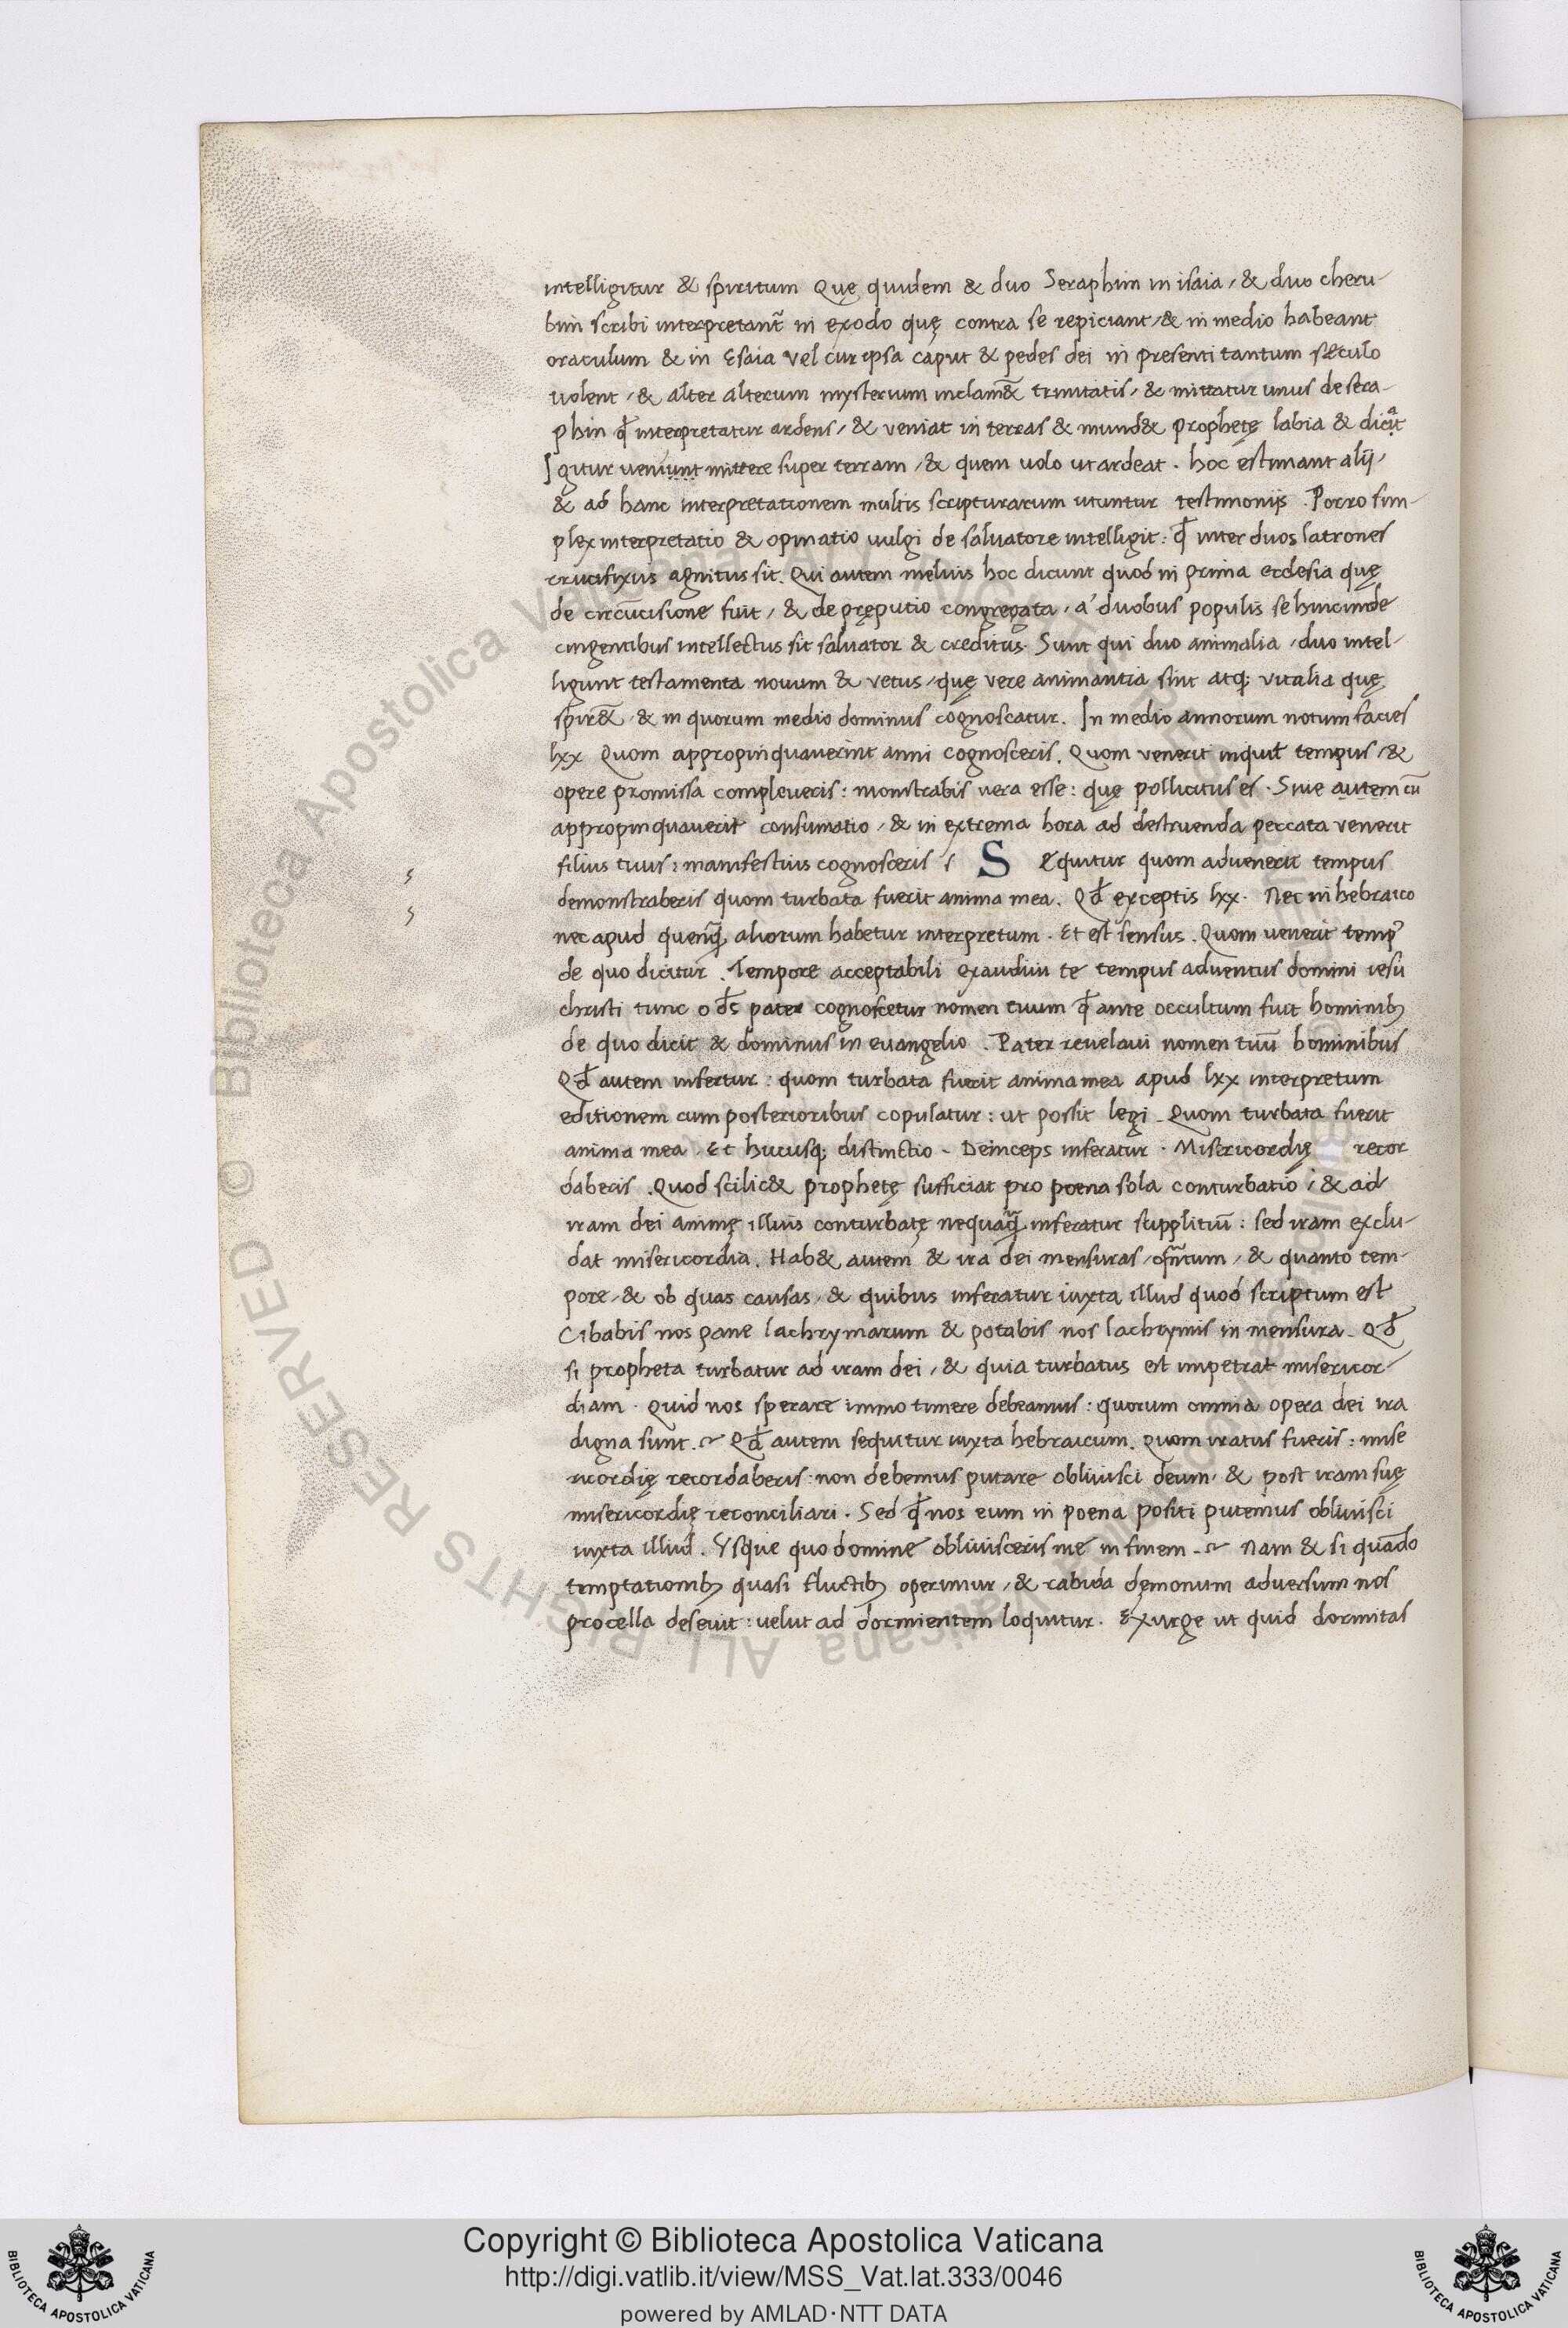 intelligitur & spiritum Quę quidem & duo Seraphim in isaia, & duo cheru-
bim scribi interpretant̃ in exodo quę contra se repiciant, & in medio habeant
oraculum & in Esaia vel cur ipsa caput & pedes dei in presenti tantum sęculo
uolent, & alter alterum mysterium inclam&̃ trinitatis, & mittatur unus de sera-
phin qđ interpretatur ardens, & veniat in terras & mund& prophetę labia & dicat
Igitur veniunt mittere super terram, & quem uolo ut ardeat. hoc estimant alij,
& ad hanc interpretationem multis scripturarum utuntur testimonijs. Porro sim-
plex interpretatio & opinatio uulgi de saluatore intelligit: qđ inter duos latrones
crucifixus agnitus sit. Qui autem melius hoc dicunt quod in prima ecclesia quę
de circũcisione fuit, & de pręputio congregata, a' duobus populis se hincinde
cingentibus intellectus sit saluator & creditus. Sunt qui duo animalia, duo intel-
ligunt testamenta nouum & vetus, quę vere animantia sint atq; vitalia quę
spir&̃, & in quorum medio dominus cognoscatur. In medio annorum notum facies
lxx Quom appropinquauerint anni cognosceris. Quom venerit inquit tempus, &
opere promissa compleueris: monstrabis vera esse: quę pollicitus es. Siue autem cũ
appropinquauerit consumatio, & in extrema hora ad destruenda peccata venerit
filius tuus: manifestius cognosceris S Equitur quom aduenerit tempus
demonstraberis quom turbata fuerit anima mea. Qđ exceptis lxx. Nec in hebraico
nec apud quenq̃, aliorum habetur interpretum. Et est sensus. Quom uenerit temp'
de quo dicitur. Tempore acceptabili exaudiui te tempus aduentus domini iesu
christi tunc o đs pater cognoscetur nomen tuum qđ ante occultum fuit hominib;
de quo dicit & dominus in euangelio. Pater reuelaui nomen tuũ hominibus
Qđ autem infertur: quom turbata fuerit anima mea apud lxx interpretum
editionem cum posterioribus copulatur: ut possit legi. Quom turbata fuerit
anima mea. Et hucusq; distinctio. Deinceps inferatur. Misericordię recor
daberis. Quod scilic& prophetę sufficiat pro poena sola conturbatio, & ad
iram dei animę illius conturbatę nequaq̃, inferatur supplitiũ: sed iram exclu-
dat misericordia. Hab& autem & ira dei mensuras, qñtum, & quanto tem-
pore, & ob quas causas, & quibus inferatur iuxta illud quod scriptum est
Cibabis nos pane lachrymarum & potabis nos lachrymis in mensura. Qđ
si propheta turbatur ad iram dei, & quia turbatus est impetrat misericor-
diam. Quid nos sperare immo timere debeamus: quorum omnia opera dei ira
digna sunt. Qđ autem sequitur iuxta hebraicum. Quom iratus fueris: mise
ricordię recordaberis: non debemus putare obliuisci deum, & post iram suę
misericordię reconciliari. Sed qđ nos eum in poena positi putemus obliuisci
iuxta illud. Vsque quo domine obliuisceris me in finem. Nam & si quãdo
temptationib; quasi fluctib; operimur, & rabida dęmonum aduersum nos
procella deseuit: uelut ad dormientem loquitur. Exurge ut quid dormitas
Copyright © Biblioteca Apostolica Vaticana
http://digi.vatlib.it/view/MSS_Vat.lat.333/0046
powered by AMLAD·NTT DATA
BIBLIOTECA APOSTOLICA VATICANA
BIBLIOTECA APOSTOLICA VATICANA